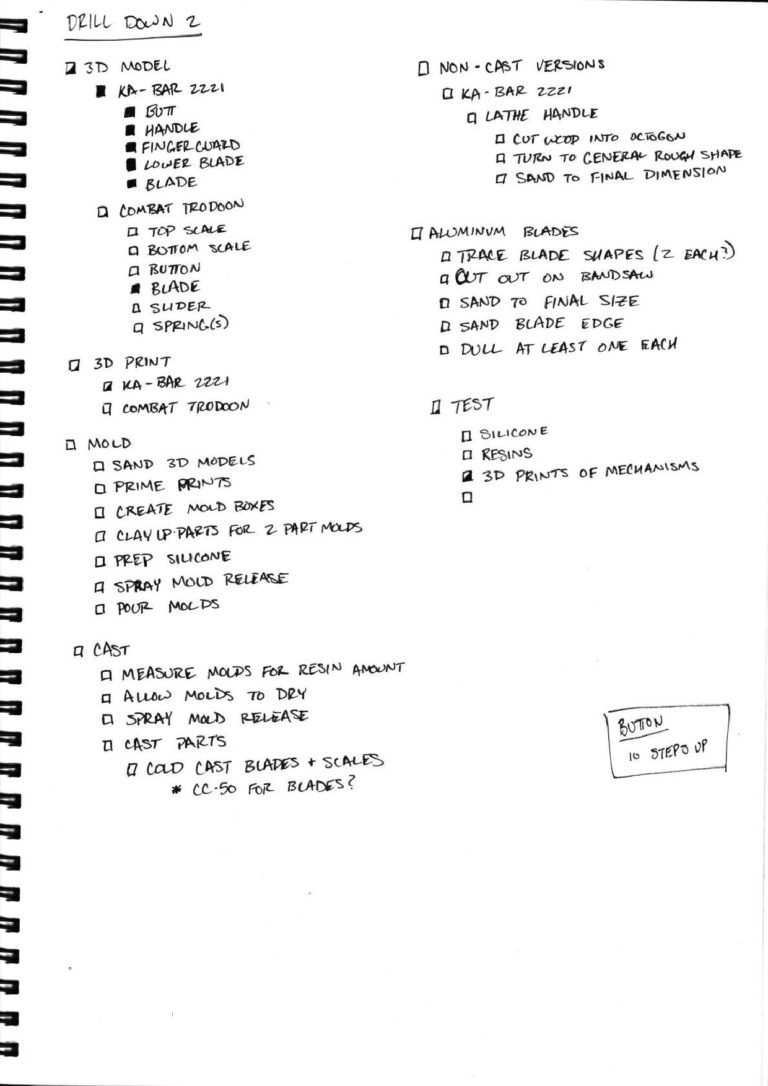 DRILL DOWN 2
3D MODEL
KA-BAR 2221
BUTT
HANDLE
FINGERGUARD
LOWER BLADE
BLADE
COMBAT TRODOON
TOP SCALE
BOTTOM SCALE
BUTTON
BLADE
SLIDER
SPRING(S)
3D PRINT
KA-BAR 2221
COMBAT TRODOON
MOLD
SAND 3D MODELS
PRIME PRINTS
CREATE MOLD BOXES
CLAY UP PARTS FOR 2 PART MOLDS
PREP SILICONE
SPRAY MOLD RELEASE
POUR MOLDS
CAST
MEASURE MOLDS FOR RESIN AMOUNT
ALLOW MOLDS TO DRY
SPRAY MOLD RELEASE
CAST PARTS
COLD CAST BLADES + SCALES
* CC-50 FOR BLADES?
NON-CAST VERSIONS
KA-BAR 2221
LATHE HANDLE
CUT WOOD INTO OCTOGON
TURN TO GENERAL ROUGH SHAPE
SAND TO FINAL DIMENSION
ALUMINUM BLADES
TRACE BLADE SHAPES (2 EACH?)
CUT OUT ON BANDSAW
SAND TO FINAL SIZE
SAND BLADE EDGE
DULL AT LEAST ONE EACH
TEST
SILICONE
RESINS
3D PRINTS OF MECHANISMS
BUTTON
10 STEPS UP